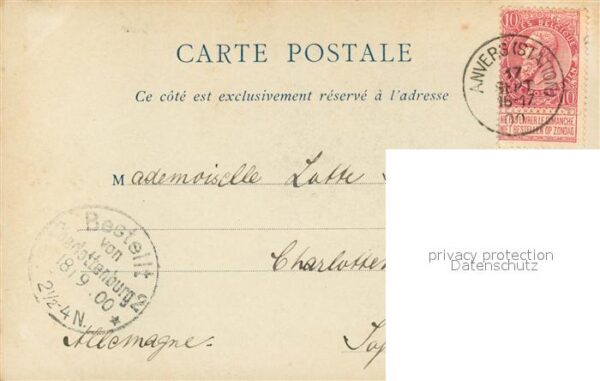 CARTE POSTALE
Ce côté est exclusivement réservé à l'adresse
10 10
ANVERS (STATION)
17
SEPT
16-17
NE PAS LIVRER LE DIMANCHE
NIET BESTELLEN OP ZONDAG
Mademoiselle Lotte
privacy protection
Datenschutz
Charlotten
Allemagne.
Bestellt
von
Charlottenburg 2
18/9.00
2½-4N. *